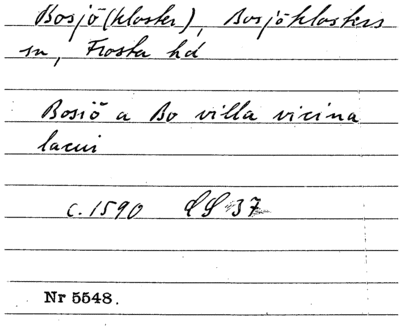 Bosjö (kloster), Bosjöklosters
sn, Frosta hd
Bosiö a Bo villa vicina
lacui
c. 1590 LL 37
Nr 5548.